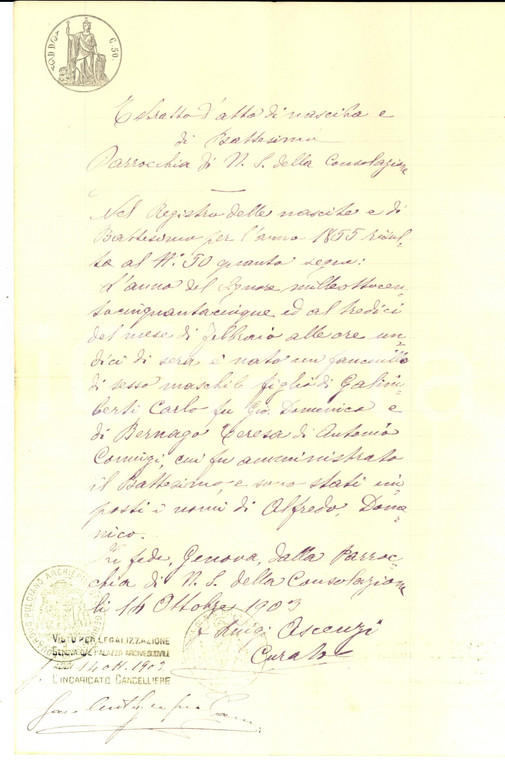 C. 50.
Estratto d'atto di nascita e
di Battesimo
Parrocchia di N. S. della Consolazione
Nel Registro delle nascite e di
Battesimo per l'anno 1855 risul-
ta al N.° 50 quanto segue:
L'anno del Signore milleottocen-
tocinquantacinque ed al tredici
del mese di Febbraio alle ore un-
dici di sera è nato un fanciullo
di sesso maschile figlio di Galim-
berti Carlo fu Gio. Domenico e
di Bernago Teresa di Antonio
Coniugi, cui fu amministrato
il Battesimo, e sono stati im-
posti i nomi di Alfredo, Dome-
nico.
In fede, Genova, dalla Parroc-
chia di N. S. della Consolazione
li 14 Ottobre 1903
Luigi Ascenzi
Curato
VISTO PER LEGALIZZAZIONE
GENOVA DAL PALAZZO ARCIVESCOVILE
14 ott. 1903
L'INCARICATO CANCELLIERE